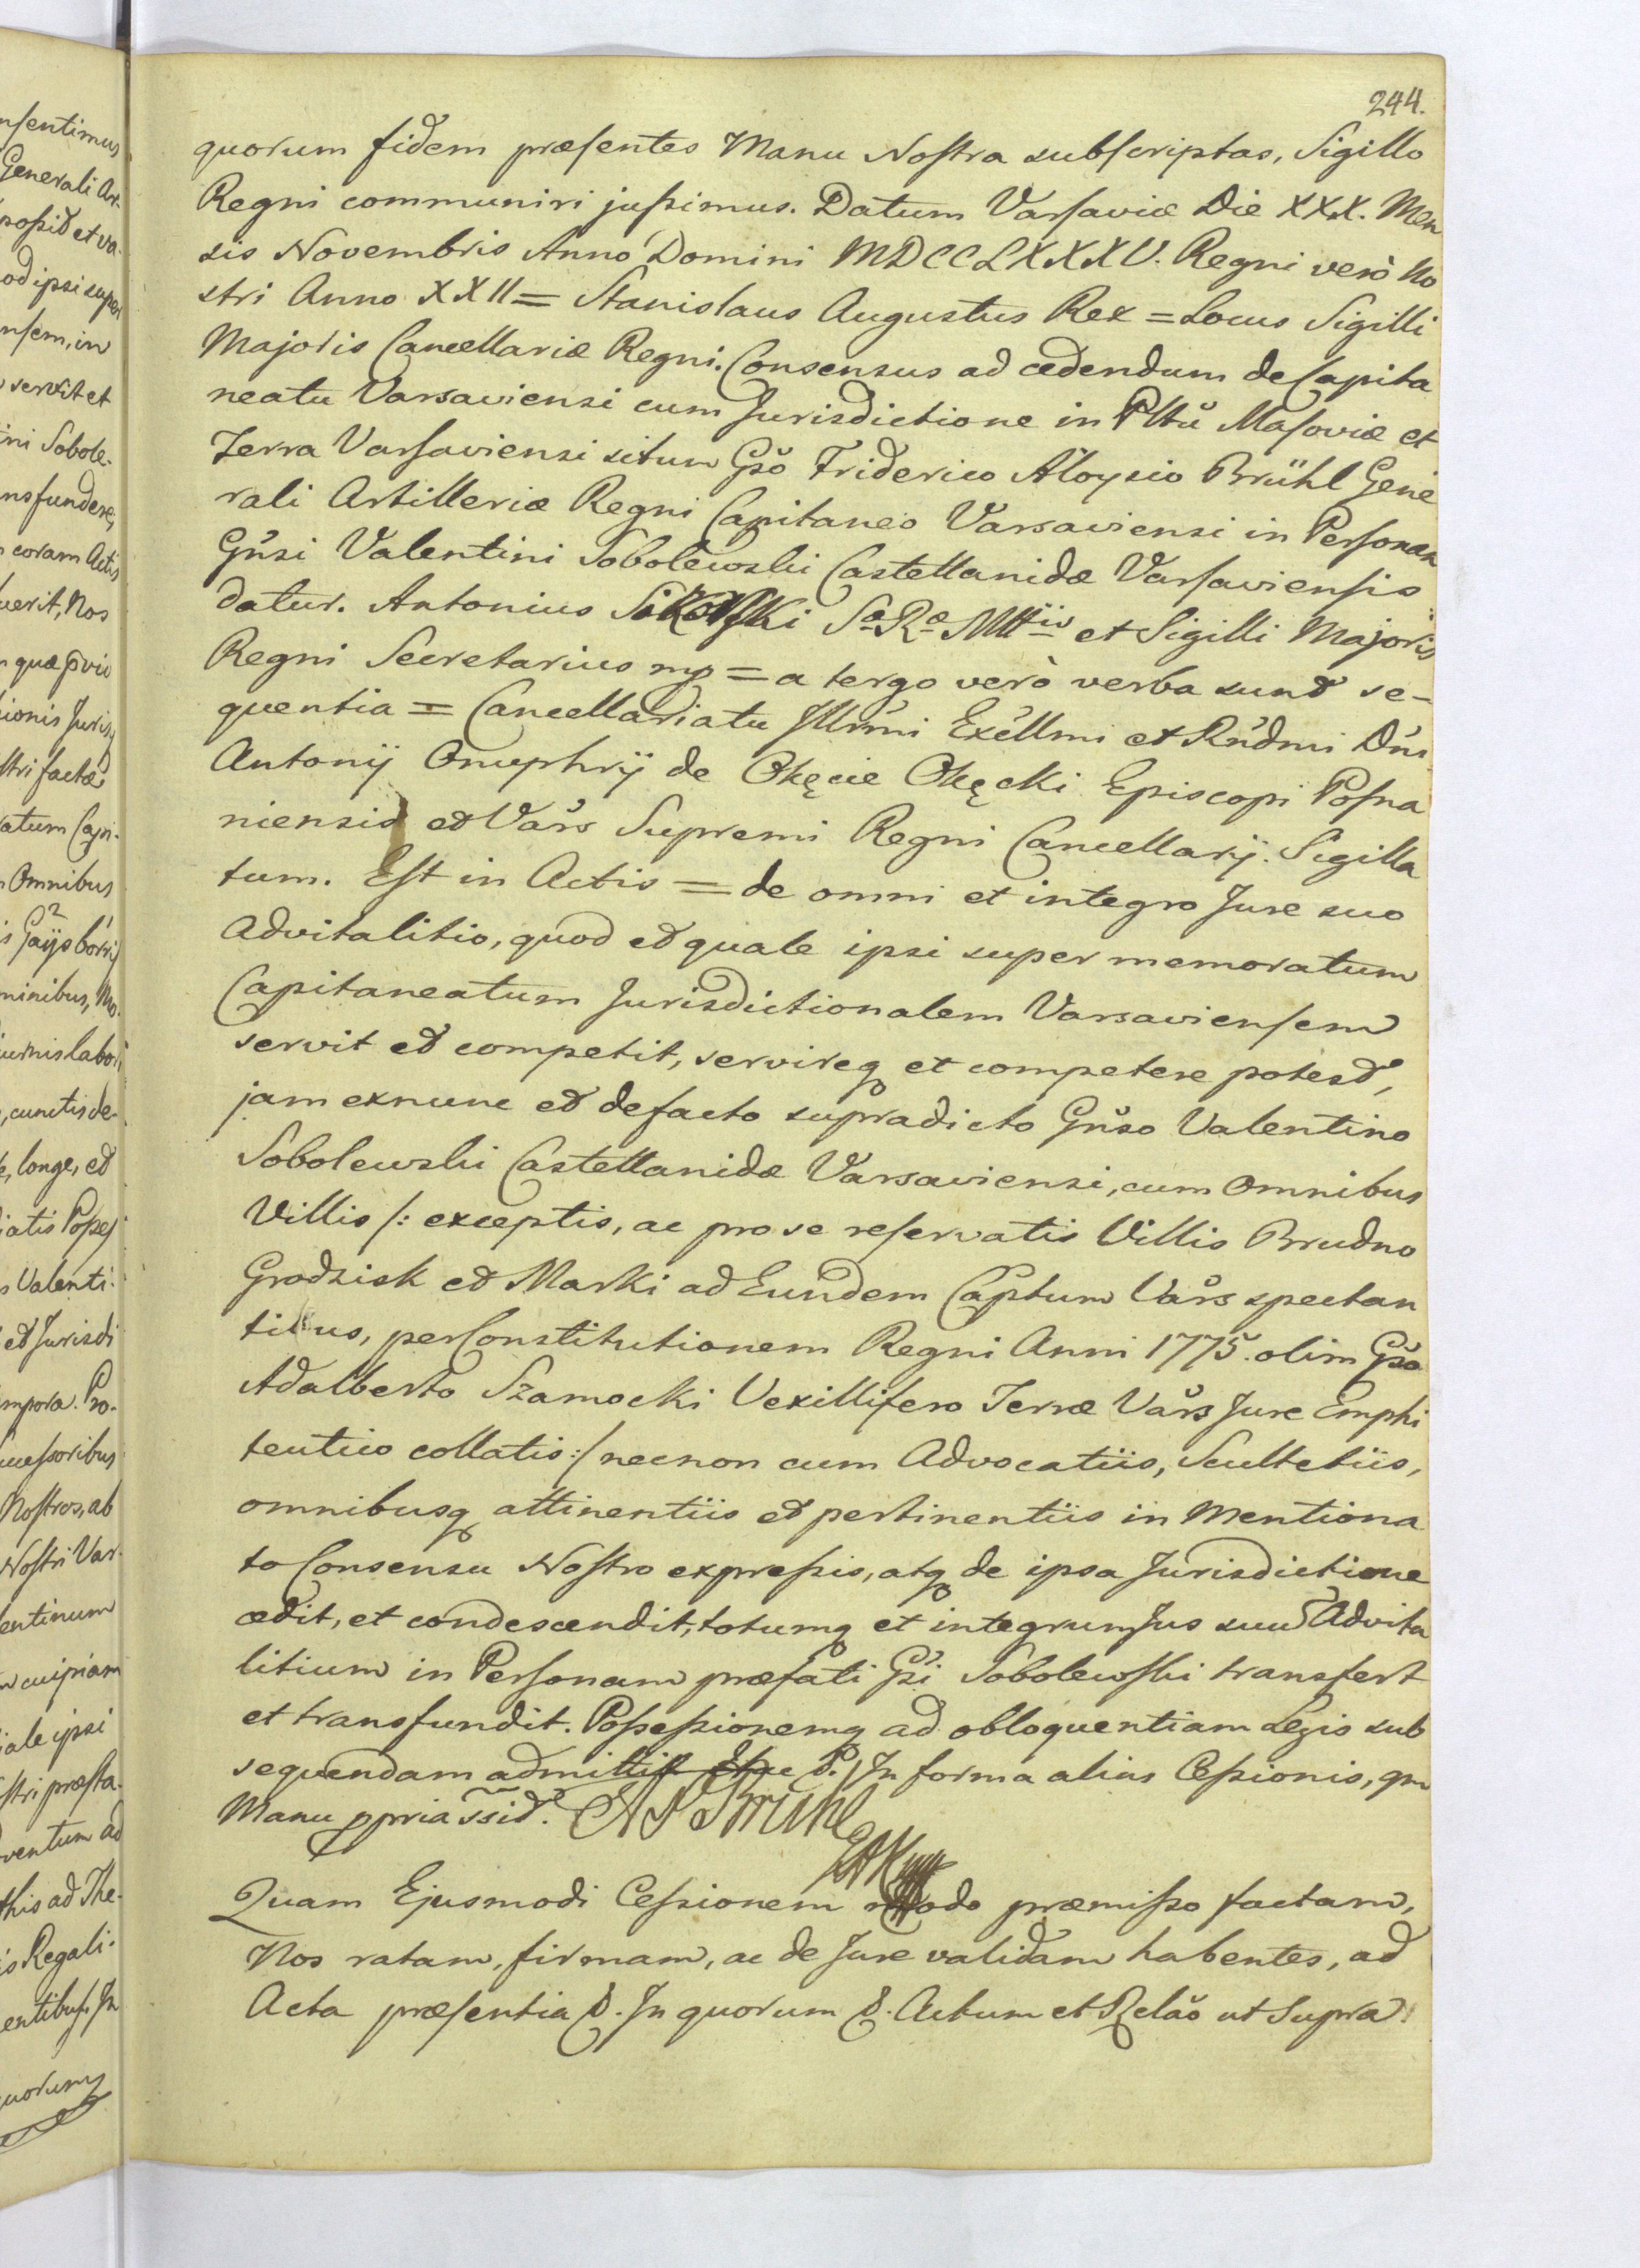 244.
quorum fidem præsentes Manu Nostra subscriptas, Sigillo
Regni communiri jussimus. Datum Varsaviæ Die XXX. Men
sis Novembris Anno Domini MDCCLXXXV. Regni verò No
stri Anno XXII = Stanislaus Augustus Rex = Locus Sigilli
Majoris Cancellariæ Regni. Consensus ad cedendum de Capita
neatu Varsaviensi cum Jurisdictione in Plttũ Masoviæ et
Terra Varsaviensi situm Gso Friderico Aloysio Brühl Gene
rali Artilleriæ Regni Capitaneo Varsaviensi in Personam
Gnsi Valentini Sobolewski Castellanidæ Varsaviensis
datur. Antonius Sikorski Sæ Ræ Mttis et Sigilli Majoris
Regni Secretarius mp = a tergo verò verba sunt se-
quentia = Cancellariatu Illrmi Excllmi et Rndmi Dni
Antonij Onuphrij de Okęcie Okęcki Episcopi Posna
niensis et Vars Supremi Regni Cancellarij. Sigilla
tum. Est in Actis = de omni et integro Jure suo
Advitalitio, quod et quale ipsi super memoratum
Capitaneatum Jurisdictionalem Varsaviensem
servit et competit, servireq et competere potest,
jam exnunc et defacto supradicto Gnso Valentino
Sobolewski Castellanidæ Varsaviensi, cum Omnibus
Villis /: exceptis, ac pro se reservatis Villis Brudno
Grodzisk et Marki ad Eundem Captum Vars spectan
tibus, per Constitutionem Regni Anni 1775. olim Gso
Adalberto Szamocki Vexillifero Terræ Vars Jure Emphi
teutico collatis :/ necnon cum Advocatiis, Scultetiis,
omnibusq attinentiis et pertinentiis in Mentiona
to Consensu Nostro expressis, atq de ipsa Jurisdictione
cedit, et condescendit, totumq et integrum Jus suu Advita
litium in Personam præfati Gsi Sobolewski transfert
et transfundit. Possessionemq ad obloquentiam Legis sub
sequendam admittit P. In forma alias Cessionis, qm
Manu ppria ssit. AF Brühl
Quam Ejusmodi Cessionem modo præmisso factam,
Nos ratam, firmam, ac de Jure validam habentes, ad
Acta præsentia P. In quorum P. Actum et Relao ut Supra